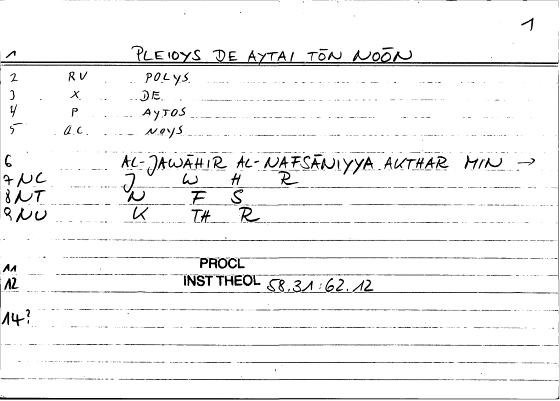 1
1 PLEIOYS DE AYTAI TŌN NOŌN
2 RV POLYS
3 X DE
4 P AYTOS
5 A.C. NOYS
6 AL-JAWĀHIR AL-NAFSĀNIYYA AKTHAR MIN →
7 NC J W H R
8 NT N F S
9 NU K TH R
11 PROCL
12 INST THEOL 58.31:62.12
14?